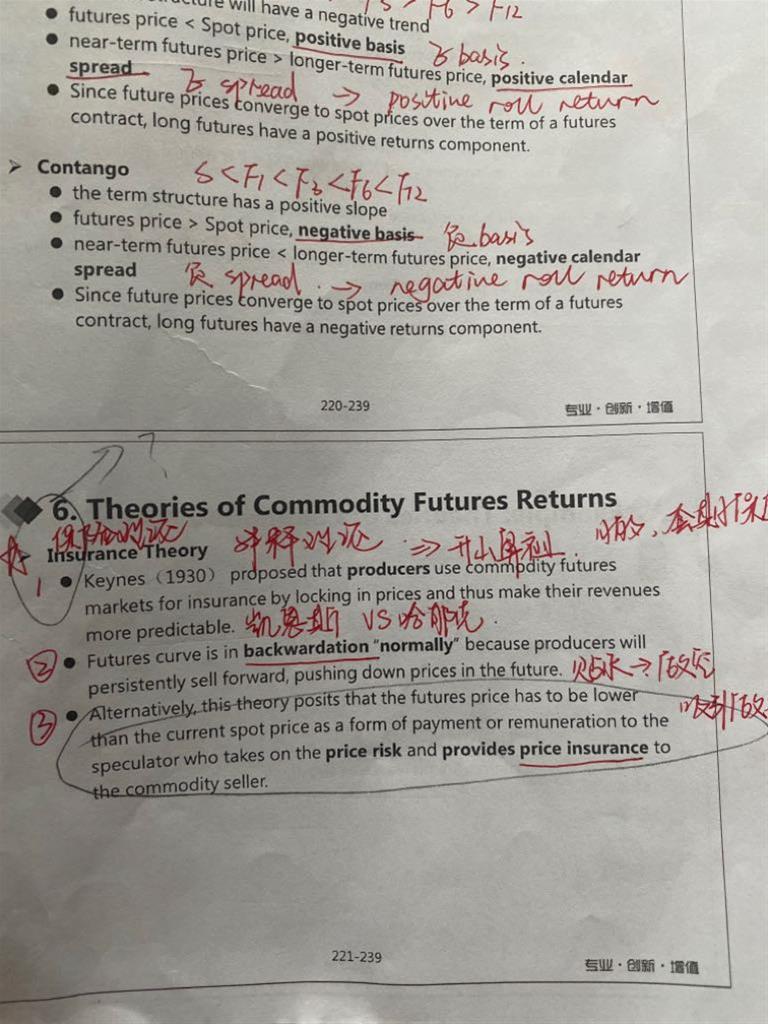 will have a negative trend
> F6 > F12
● futures price < Spot price, positive basis
正 basis.
● near-term futures price > longer-term futures price, positive calendar
spread
正 spread → positive roll return
● Since future prices converge to spot prices over the term of a futures
contract, long futures have a positive returns component.
➢ Contango
S < F1 < F3 < F6 < F12
● the term structure has a positive slope
● futures price > Spot price, negative basis
负 basis
● near-term futures price < longer-term futures price, negative calendar
spread
负 spread. → negative roll return
● Since future prices converge to spot prices over the term of a futures
contract, long futures have a negative returns component.
220-239
专业·创新·增值
?
6. Theories of Commodity Futures Returns
保险理论
Insurance Theory
⇒ 开山鼻祖
1
● Keynes（1930） proposed that producers use commodity futures
markets for insurance by locking in prices and thus make their revenues
more predictable.
凯恩斯 VS
② ● Futures curve is in backwardation "normally" because producers will
persistently sell forward, pushing down prices in the future.
贴水 →
③ ● Alternatively, this theory posits that the futures price has to be lower
than the current spot price as a form of payment or remuneration to the
speculator who takes on the price risk and provides price insurance to
the commodity seller.
221-239
专业·创新·增值